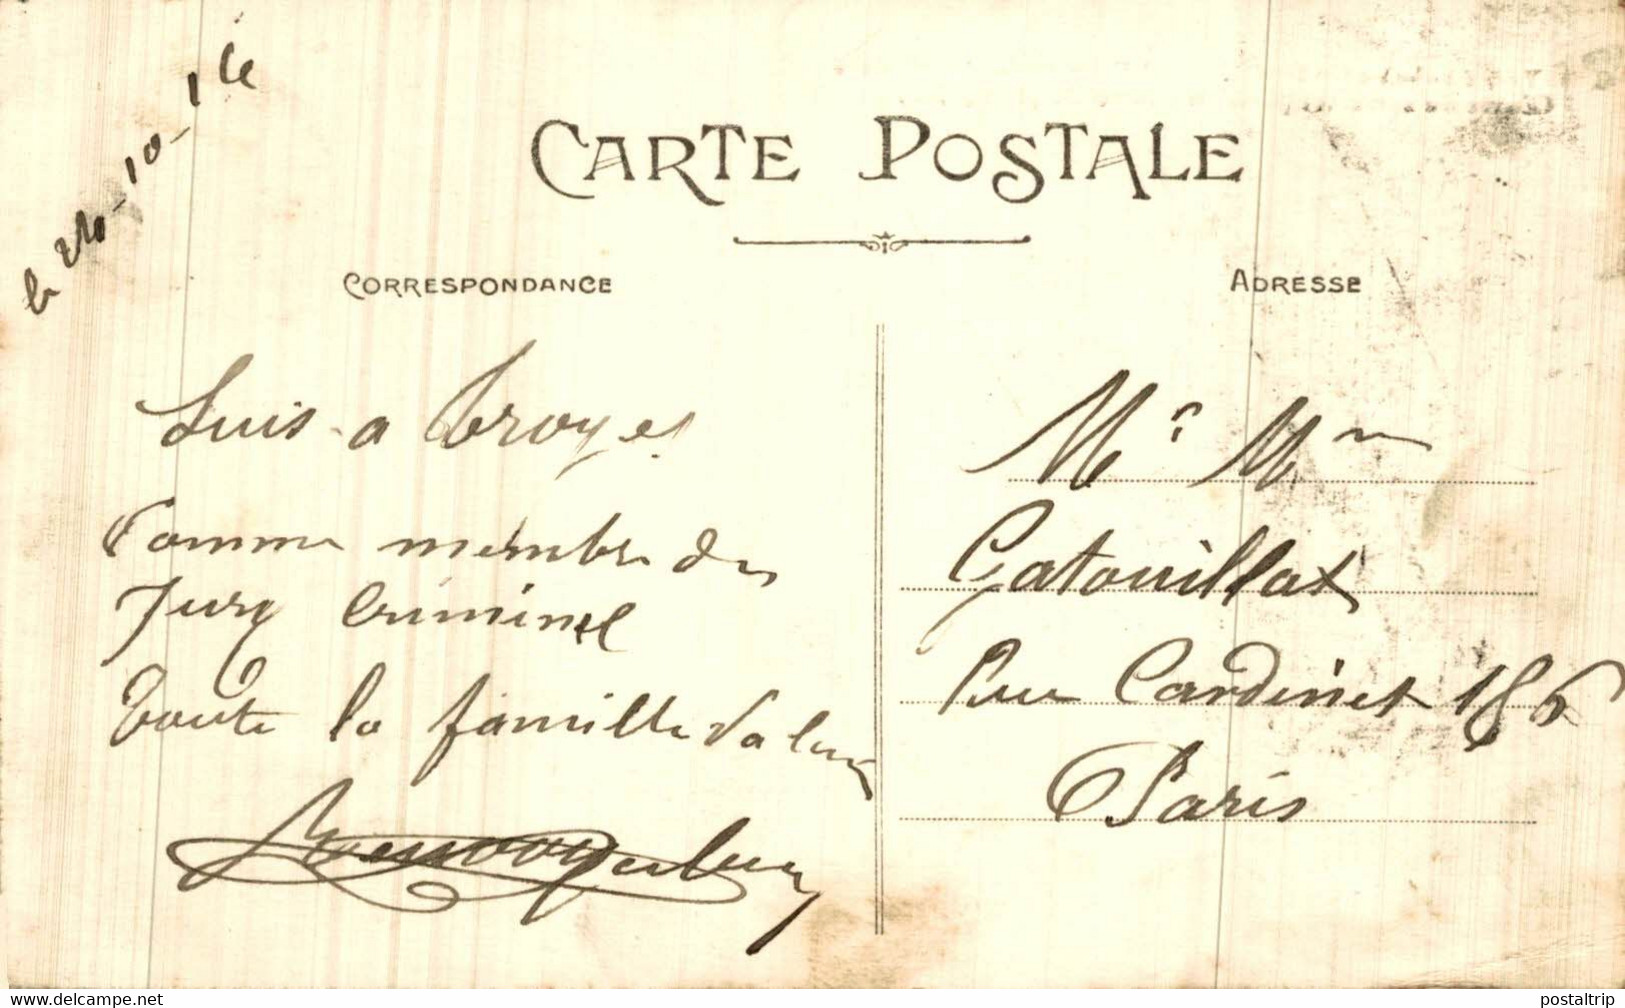 le 24-10-14
CARTE POSTALE
CORRESPONDANCE
ADRESSE
Suis a Troyes
Comme membre du
Jury Criminel
toute la famille
Mr Mme
Gatouillat
Rue Cardinet 186
Paris
www.delcampe.net
postaltrip